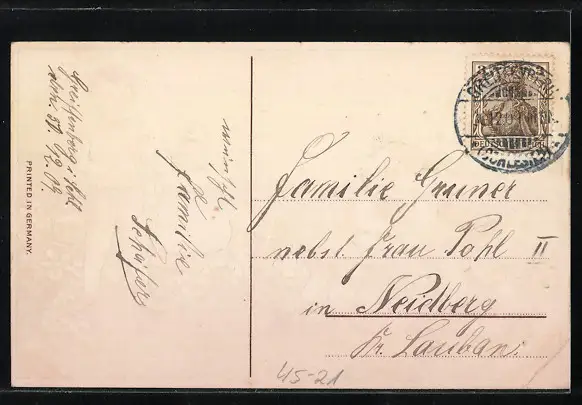 Greiffenberg i. Schl.
den. 31. 12. 09.
PRINTED IN GERMANY.
Familie
Schäfer
3 3
GREIFFENBERG
(SCHLESIEN)
Familie Gruner
nebst Frau Pohl II
in Neidberg
Kr. Lauban.
45-21